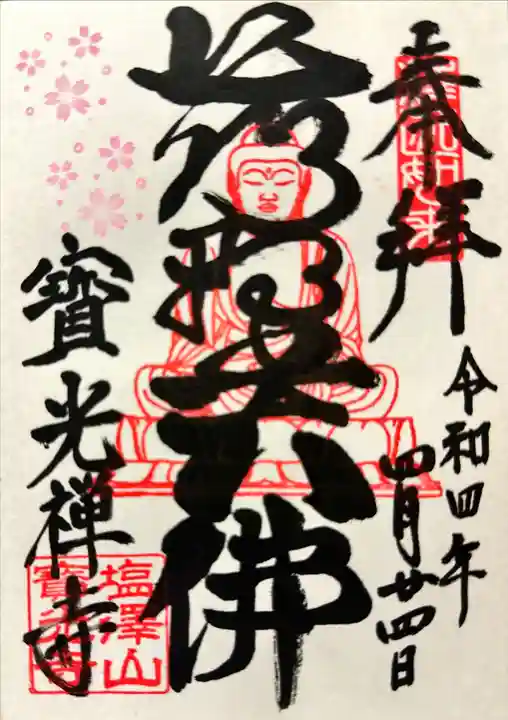 奉拝
令和四年
四月廿四日
鹿野大佛
寶光禅寺
塩澤山
寶光寺